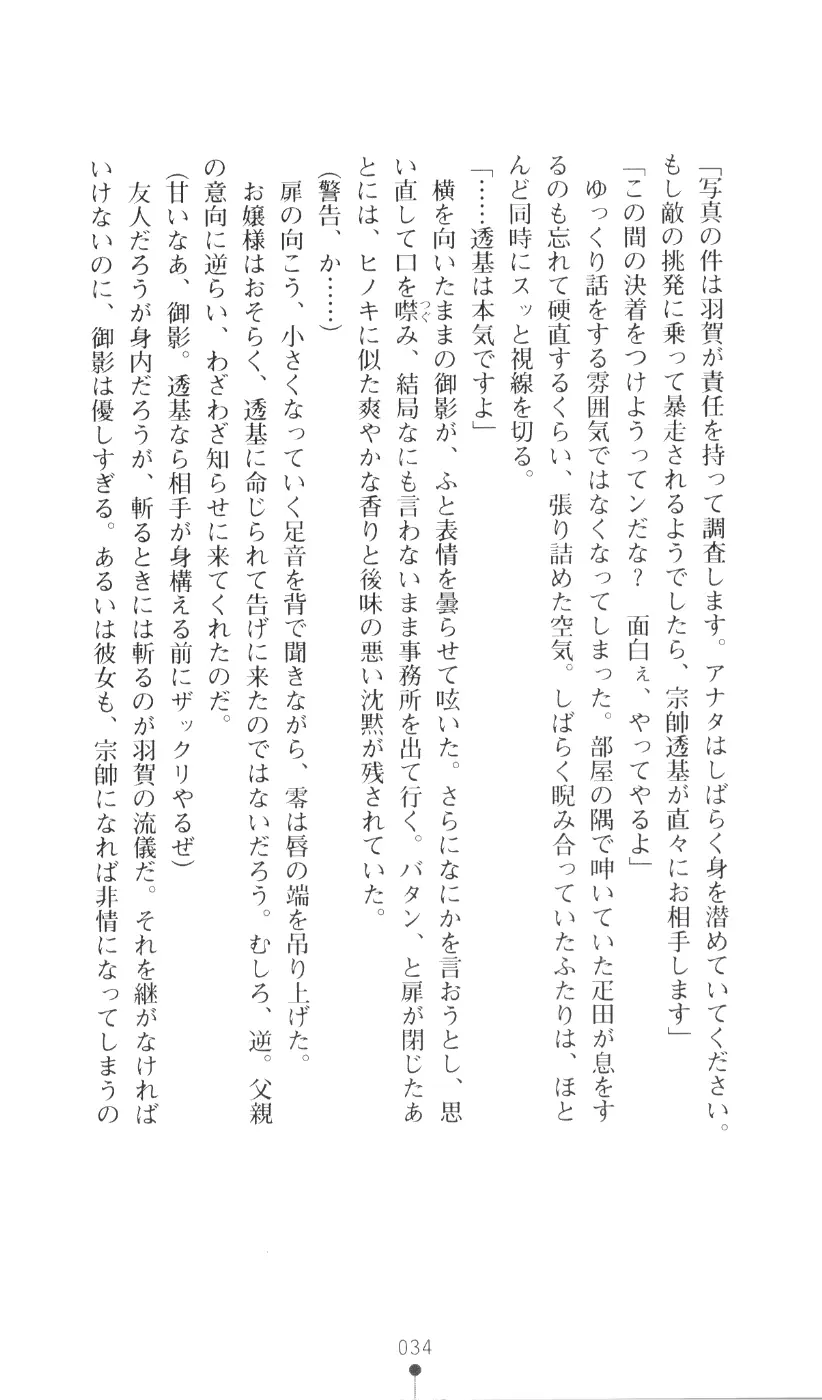 「写真の件は羽賀が責任を持って調査します。アナタはしばらく身を潜めていてください。
もし敵の挑発に乗って暴走されるようでしたら、宗師透基が直々にお相手します」
「この間の決着をつけようってンだな？　面白ぇ、やってやるよ」
　ゆっくり話をする雰囲気ではなくなってしまった。部屋の隅で呻いていた疋田が息をす
るのも忘れて硬直するくらい、張り詰めた空気。しばらく睨み合っていたふたりは、ほと
んど同時にスッと視線を切る。
「……透基は本気ですよ」
　横を向いたままの御影が、ふと表情を曇らせて呟いた。さらになにかを言おうとし、思
い直して口を噤み、結局なにも言わないまま事務所を出て行く。バタン、と扉が閉じたあ
つぐ
とには、ヒノキに似た爽やかな香りと後味の悪い沈黙が残されていた。
（警告、か……）
　扉の向こう、小さくなっていく足音を背で聞きながら、零は唇の端を吊り上げた。
　お嬢様はおそらく、透基に命じられて告げに来たのではないだろう。むしろ、逆。父親
の意向に逆らい、わざわざ知らせに来てくれたのだ。
（甘いなあ、御影。透基なら相手が身構える前にザックリやるぜ）
　友人だろうが身内だろうが、斬るときには斬るのが羽賀の流儀だ。それを継がなければ
いけないのに、御影は優しすぎる。あるいは彼女も、宗師になれば非情になってしまうの
034